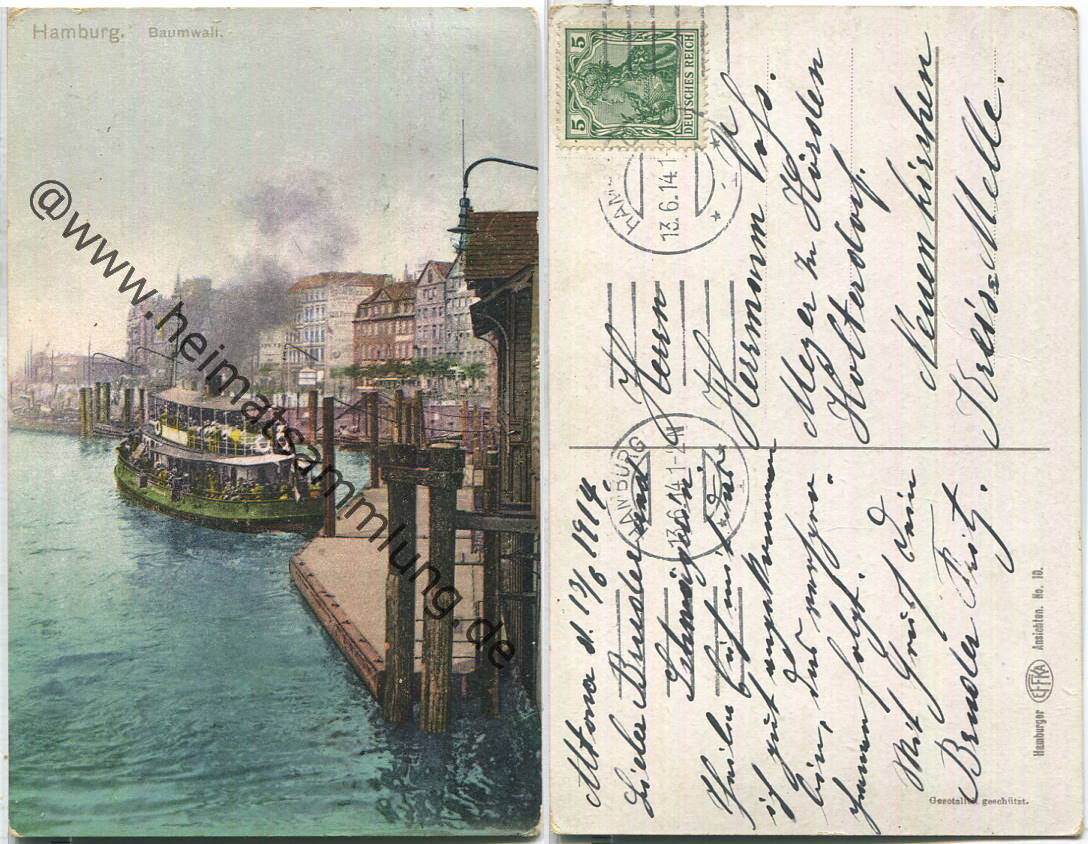 Hamburg. Baumwall.
@www.heimatsammlung.de
5 5
DEUTSCHES REICH
HAM
13.6.14.1-2
HAMBURG
13.6.14.1-2
Herrn
Herrmann
Holterdorf.
Neuenkirchen
Kreis=Melle.
Altona d. 13/6 1914
Lieber Bruder und
Schwägerin
Theilen Euch mit
ich gut angekommen
bin,
folgt.
Mit Gruß Dein
Bruder Fritz.
Gesetzlich geschützt.
Hamburger EFFKA Ansichten. No. 10.